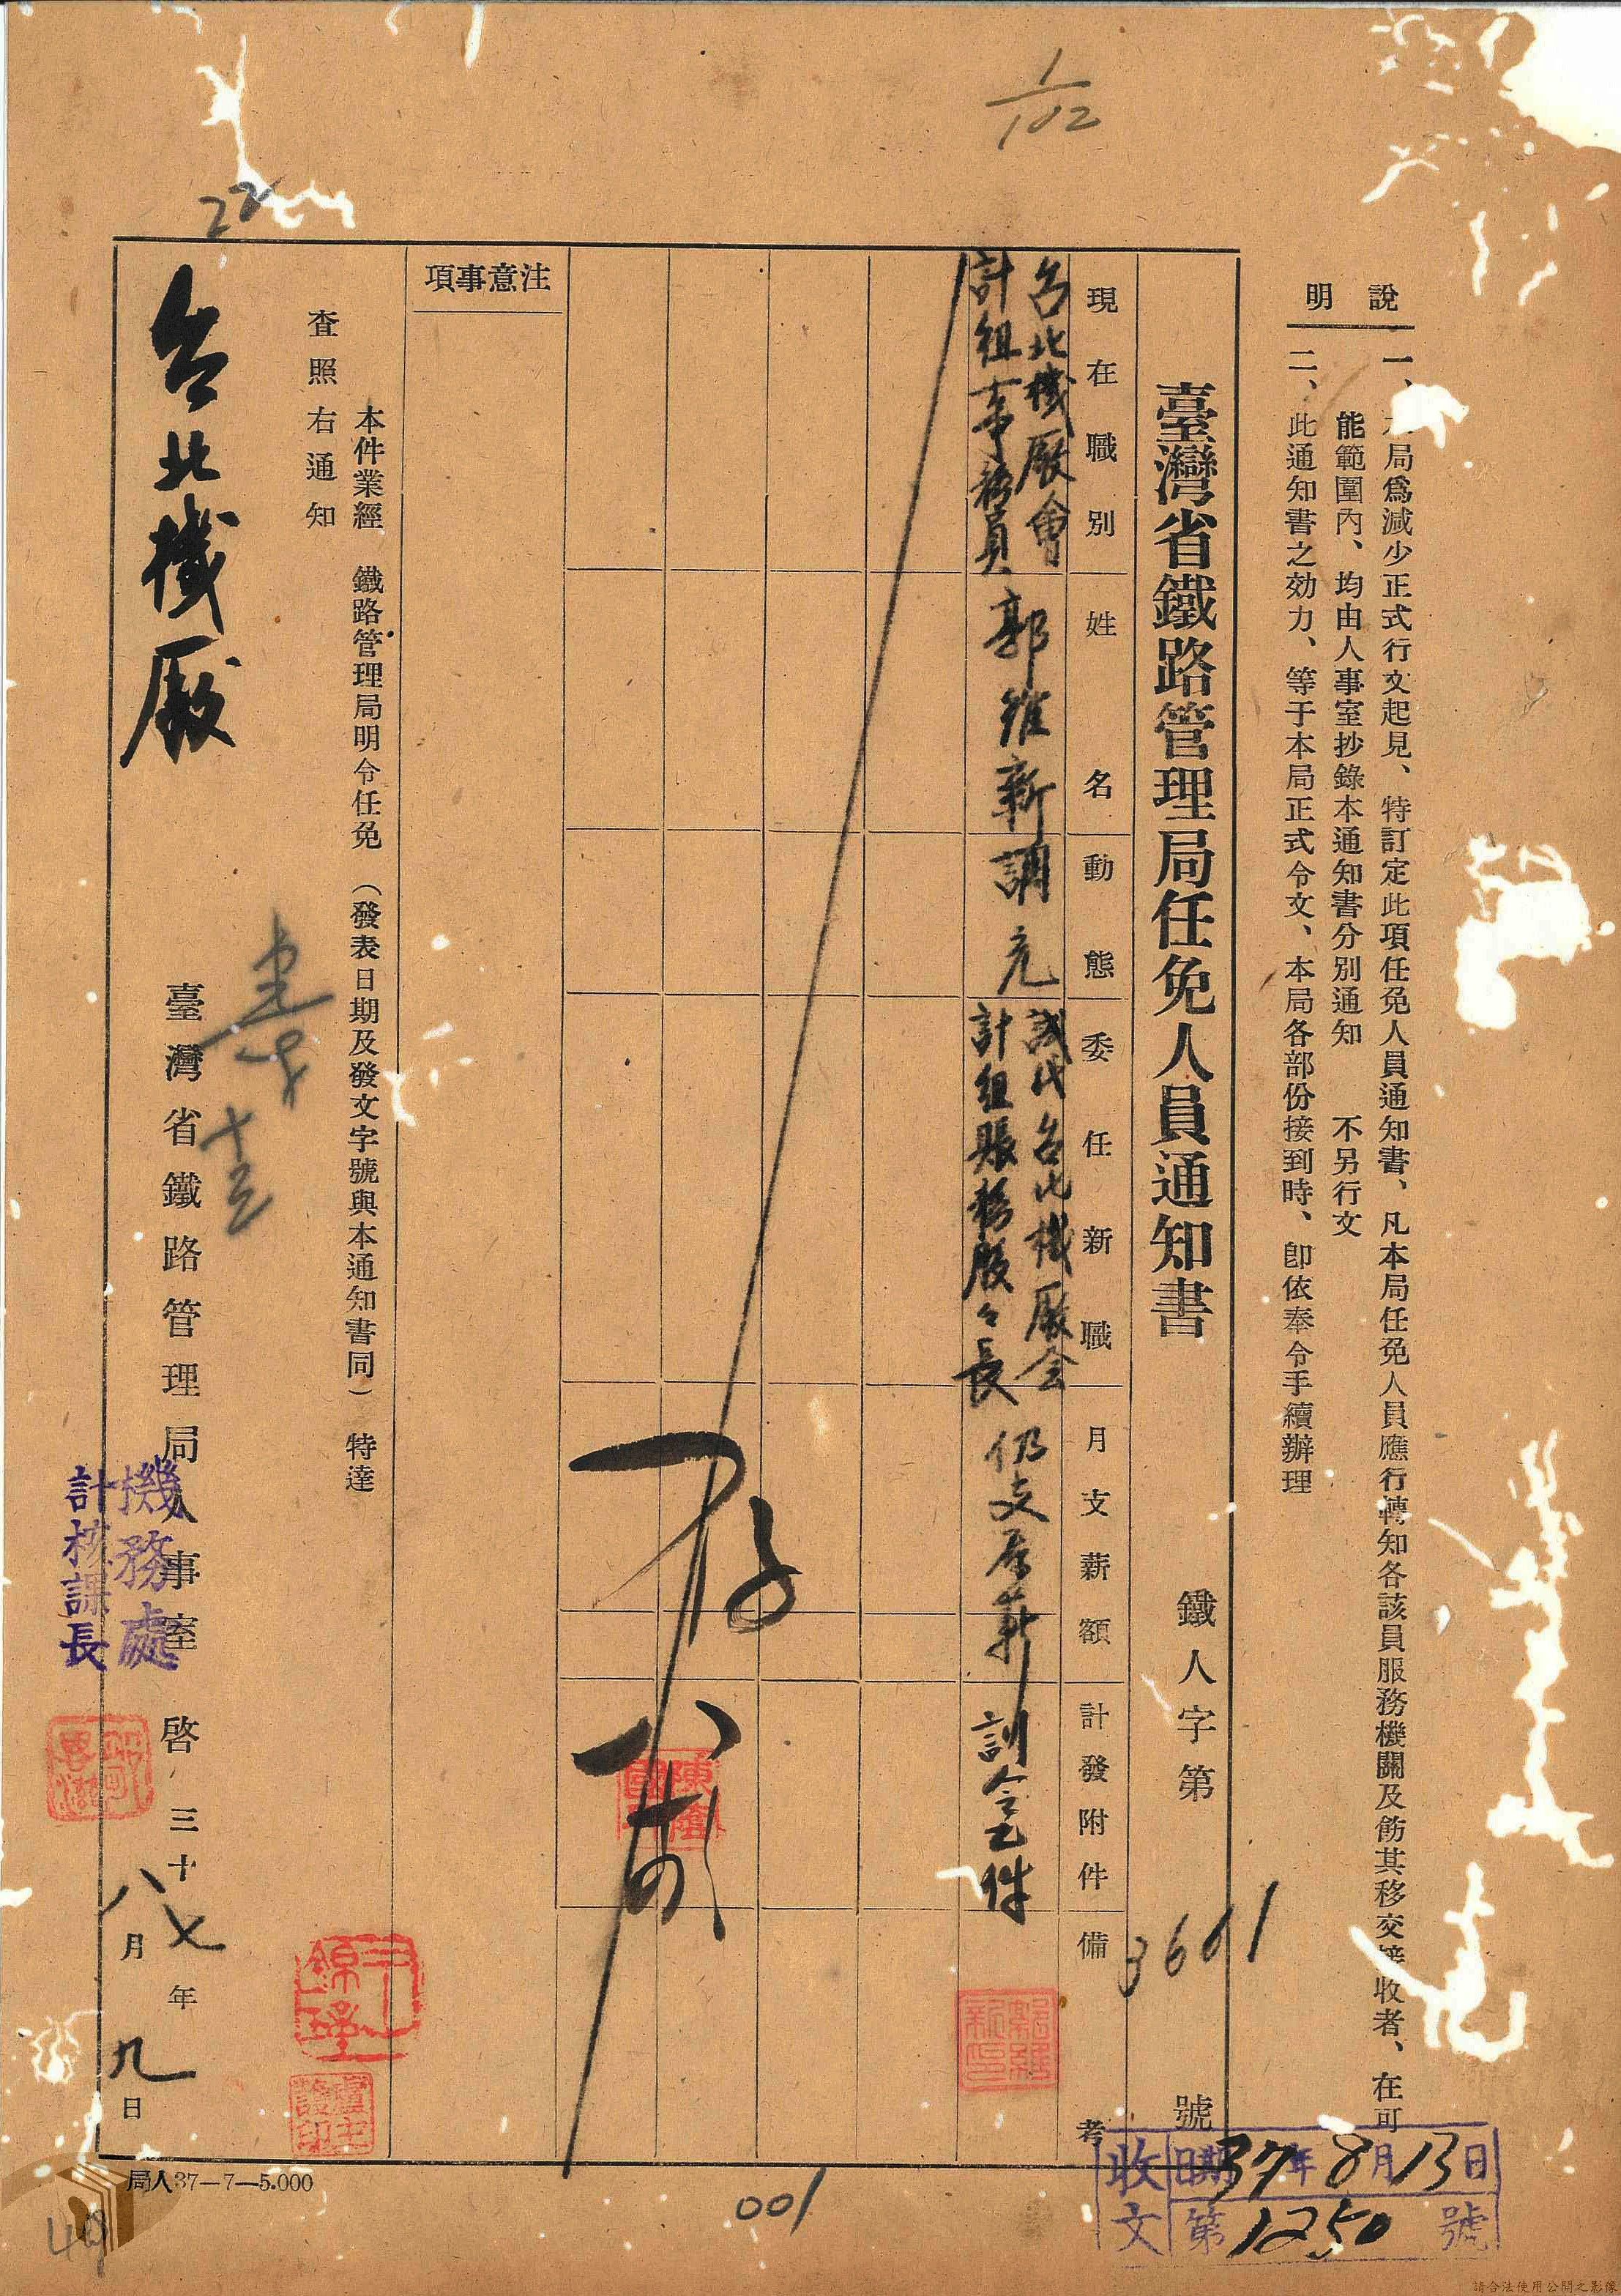 說明
一、本局爲減少正式行文起見、特訂定此項任免人員通知書、凡本局任免人員應行轉知各該員服務機關及飭其移交接收者、在可
能範圍內、均由人事室抄錄本通知書分別通知 不另行文
二、此通知書之効力、等于本局正式令文、本局各部份接到時、卽依奉令手續辦理
臺灣省鐵路管理局任免人員通知書
鐵人字第3661號
現在職別
姓名
動態
委任新職
月支薪額
計發附件
備考
台北機廠會
計組事務員
郭維新
調充
試代台北機廠会
計組賬務股々長
仍支原薪
訓令乙件
注意事項
本件業經 鐵路管理局明令任免 (發表日期及發文字號與本通知書同) 特達
查照右通知
台北機廠
臺灣省鐵路管理局人事室 啓 三十七年
八月九日
機務處
計核課長
收文
日期37年8月13日
第1250號
局人37—7—5.000
001
1/102
22
49
請合法使用公開之影像